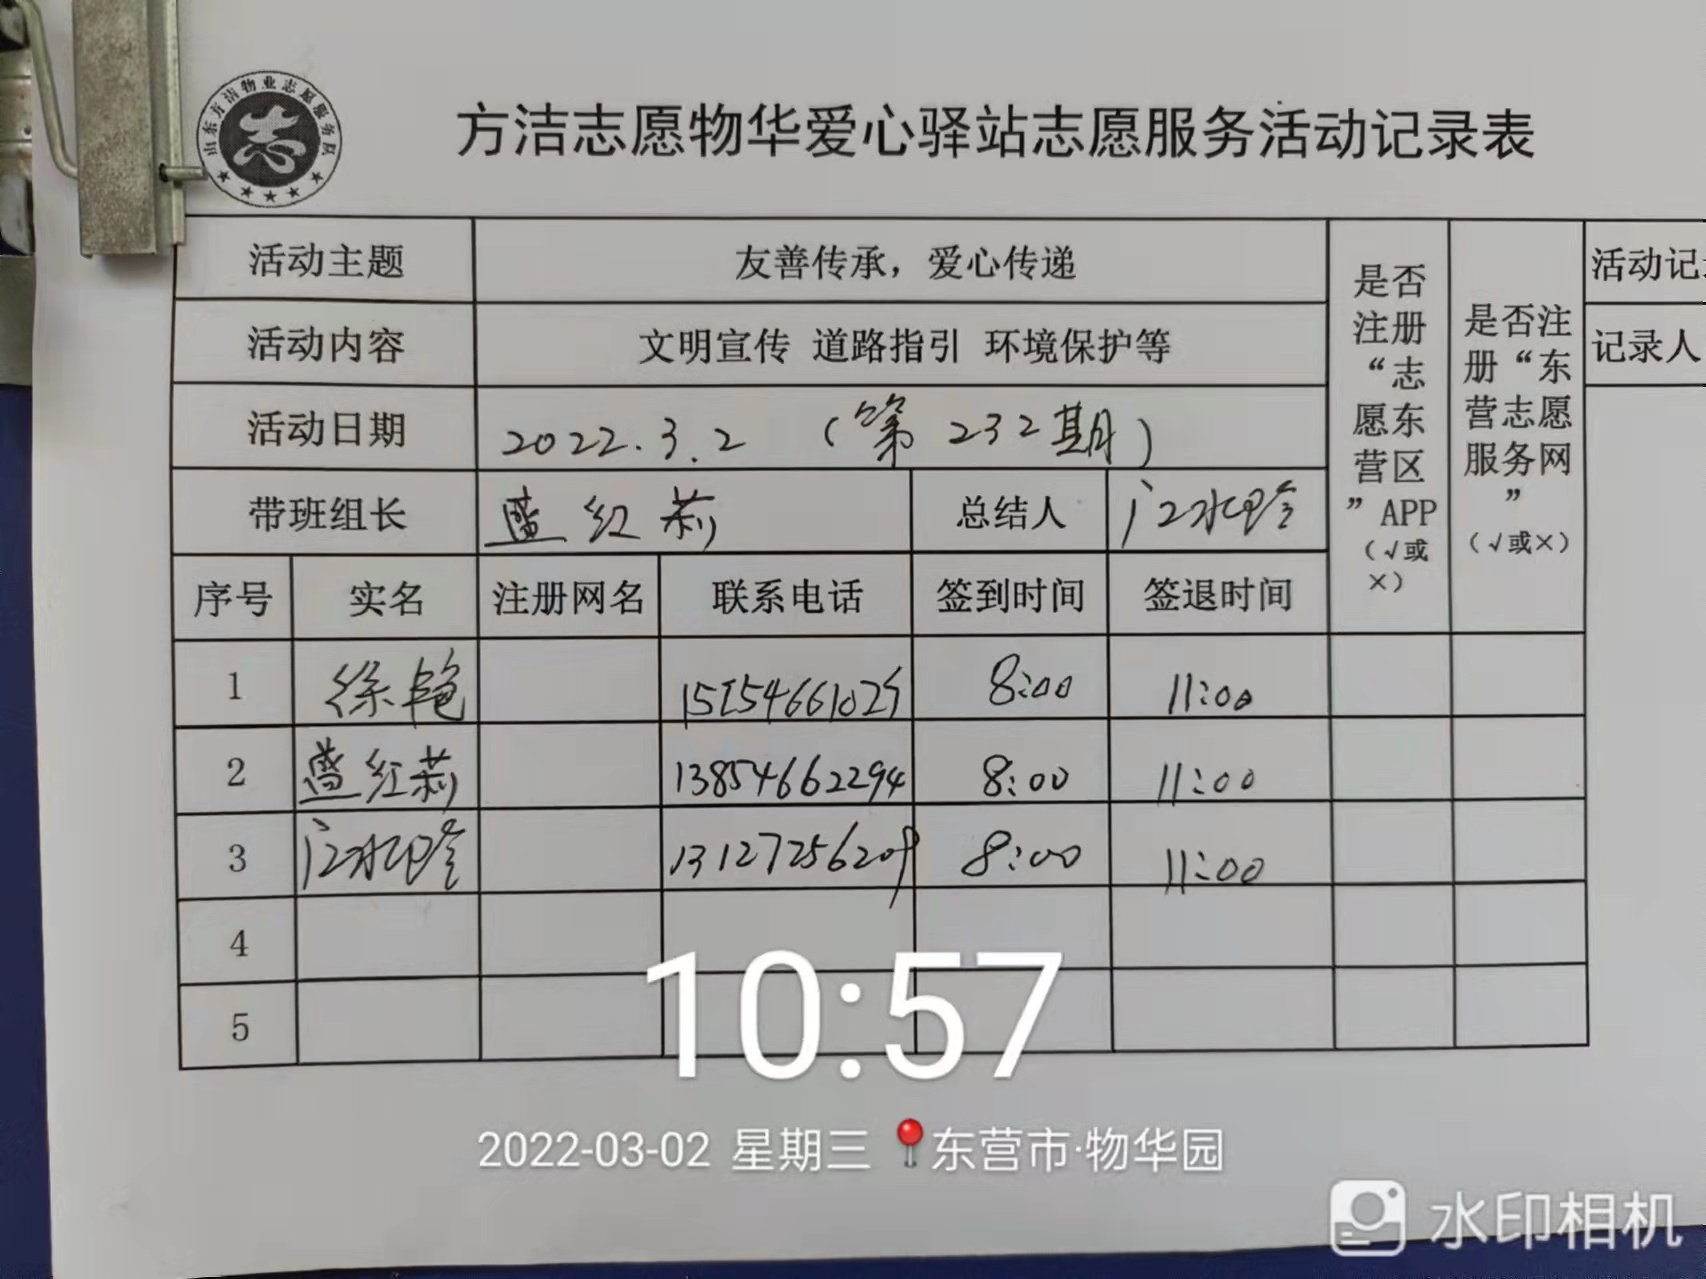 山东方洁物业志愿服务队
志
方洁志愿物华爱心驿站志愿服务活动记录表
活动主题 友善传承，爱心传递
活动内容 文明宣传 道路指引 环境保护等
活动日期 2022.3.2 （第232期）
带班组长 蓝红莉 总结人
是否注册“志愿东营区”APP（√或×）
是否注册“东营志愿服务网”（√或×）
活动记
记录人
序号 实名 注册网名 联系电话 签到时间 签退时间
1 徐艳 15154661025 8:00 11:00
2 蓝红莉 13854662294 8:00 11:00
3 13127256209 8:00 11:00
4
5
10:57
2022-03-02 星期三 东营市·物华园
水印相机